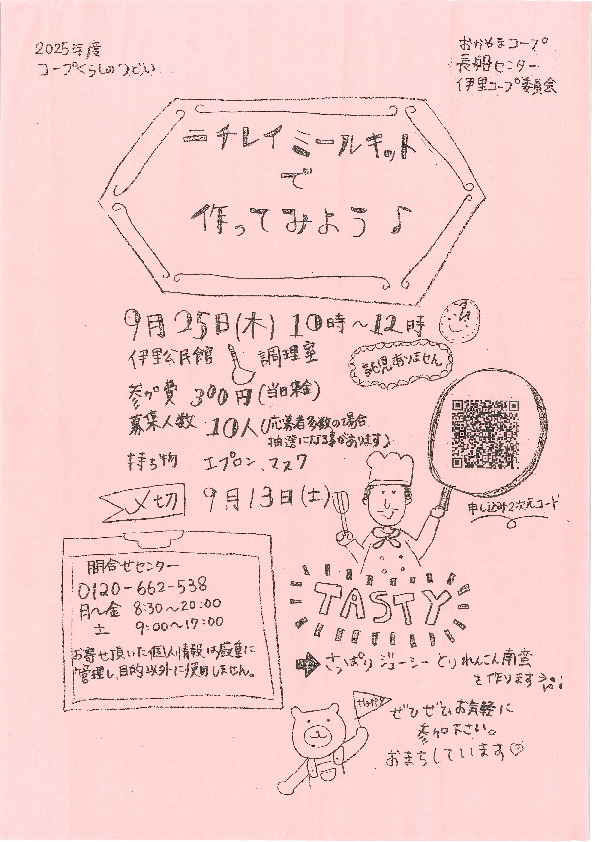 2025年度
コープくらしのつどい
おかやまコープ
長船センター
伊里コープ委員会
ニチレイミールキット
で
作ってみよう♪
9月25日(木) 10時～12時
伊里公民館 調理室
託児ありません
参加費 300円(当日集金)
募集人数 10人(応募者多数の場合
抽選になる事があります)
持ち物 エプロン、マスク
〆切 9月13日(土)
申し込み2次元コード
問合せセンター
0120-662-538
月～金 8:30～20:00
土 9:00～17:00
お寄せ頂いた個人情報は厳重に
管理し目的以外に使用しません。
TASTY
さっぱりジューシーとりれんこん南蛮
を作ります
ぜひぜひお気軽に
参加下さい。
おまちしています♡